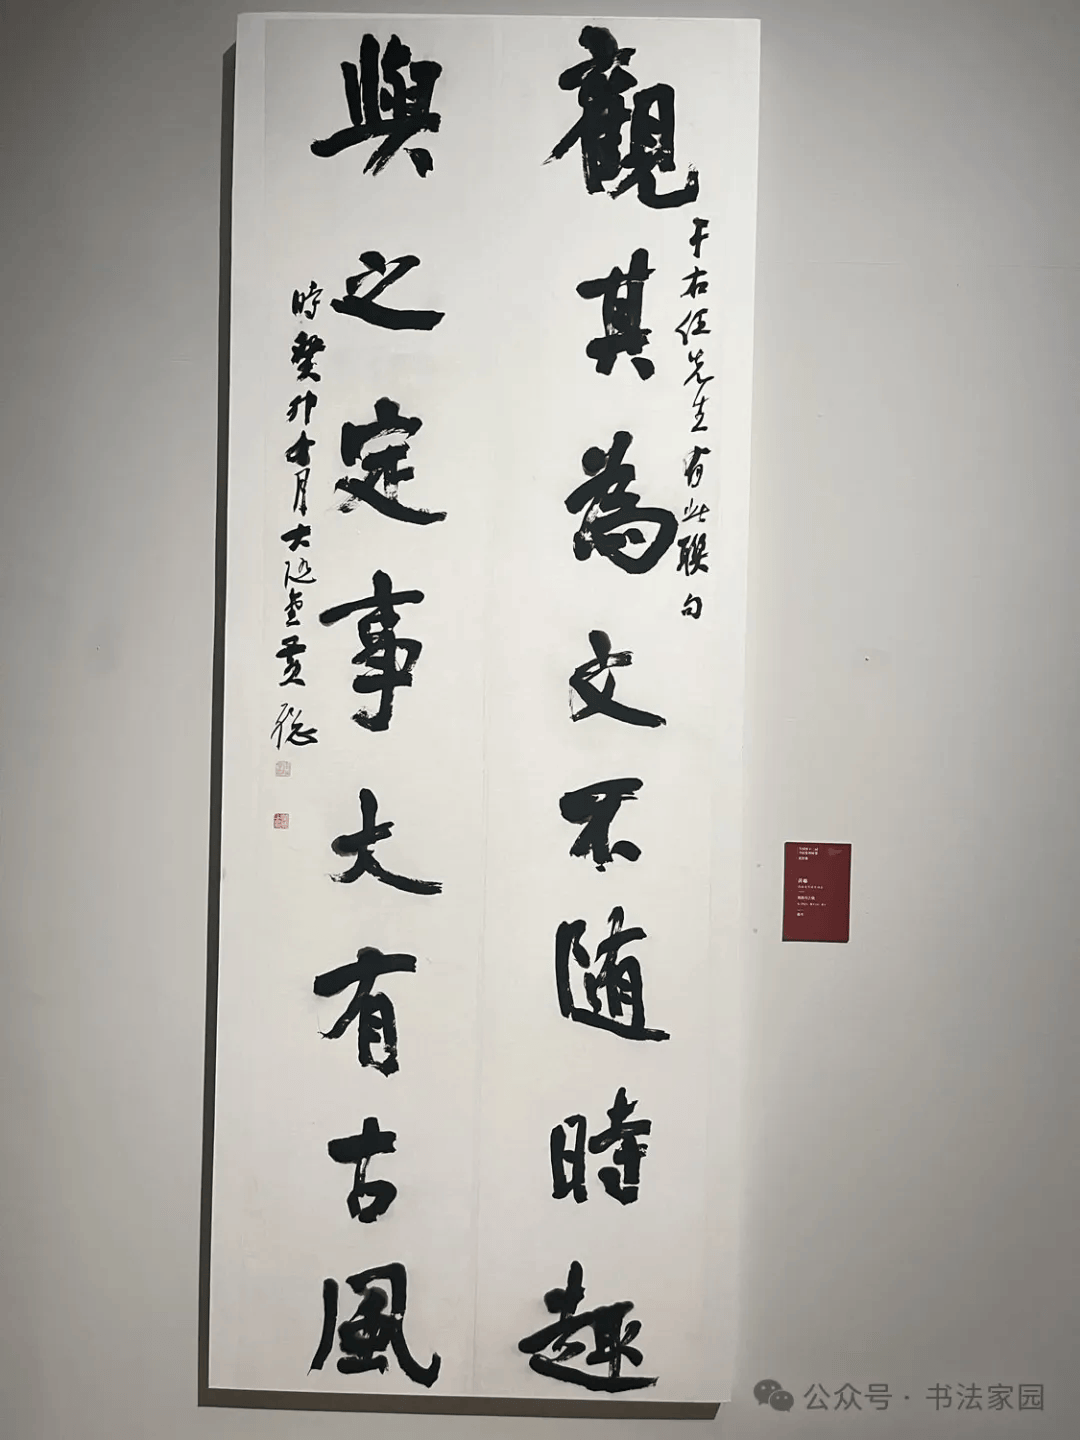 觀其為文不随時趣
于右任先生有此聯句
與之定事大有古風
時癸卯十月大隠堂黄
公众号·书法家园